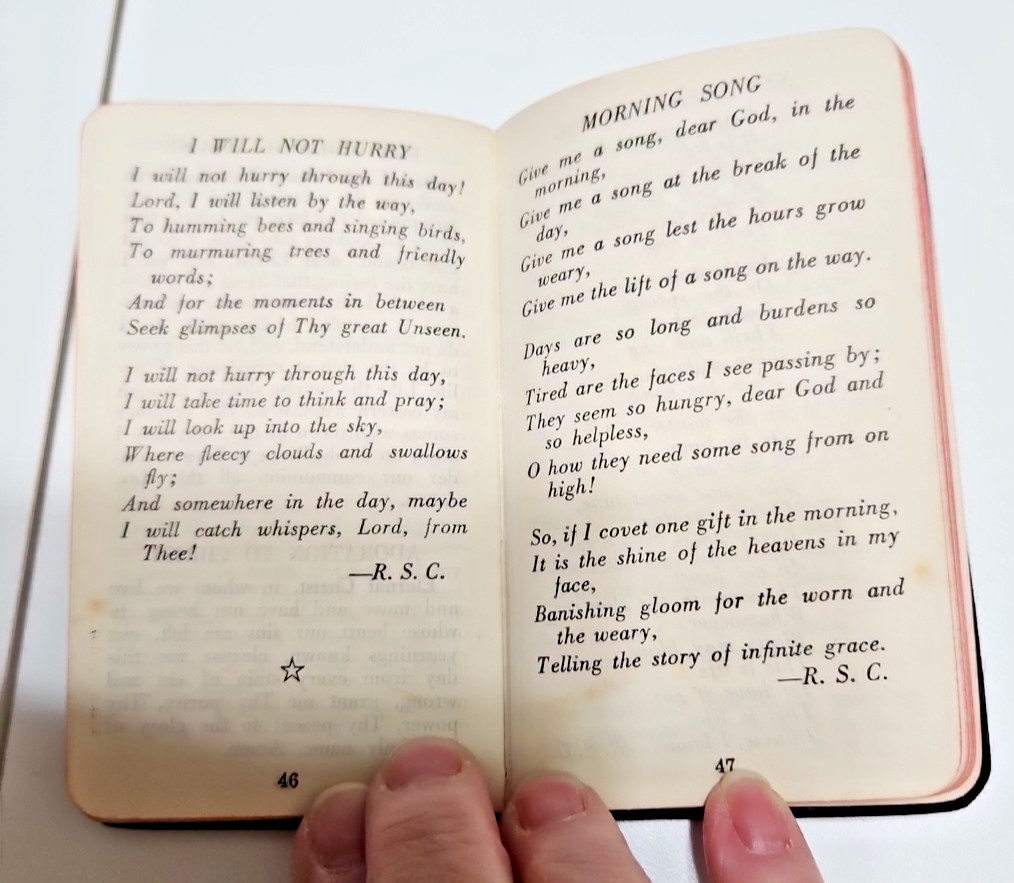 I WILL NOT HURRY
I will not hurry through this day!
Lord, I will listen by the way,
To humming bees and singing birds,
To murmuring trees and friendly
words;
And for the moments in between
Seek glimpses of Thy great Unseen.
I will not hurry through this day,
I will take time to think and pray;
I will look up into the sky,
Where fleecy clouds and swallows
fly;
And somewhere in the day, maybe
I will catch whispers, Lord, from
Thee!
—R. S. C.
46
MORNING SONG
Give me a song, dear God, in the
morning,
Give me a song at the break of the
day,
Give me a song lest the hours grow
weary,
Give me the lift of a song on the way.
Days are so long and burdens so
heavy,
Tired are the faces I see passing by;
They seem so hungry, dear God and
so helpless,
O how they need some song from on
high!
So, if I covet one gift in the morning,
It is the shine of the heavens in my
face,
Banishing gloom for the worn and
the weary,
Telling the story of infinite grace.
—R. S. C.
47